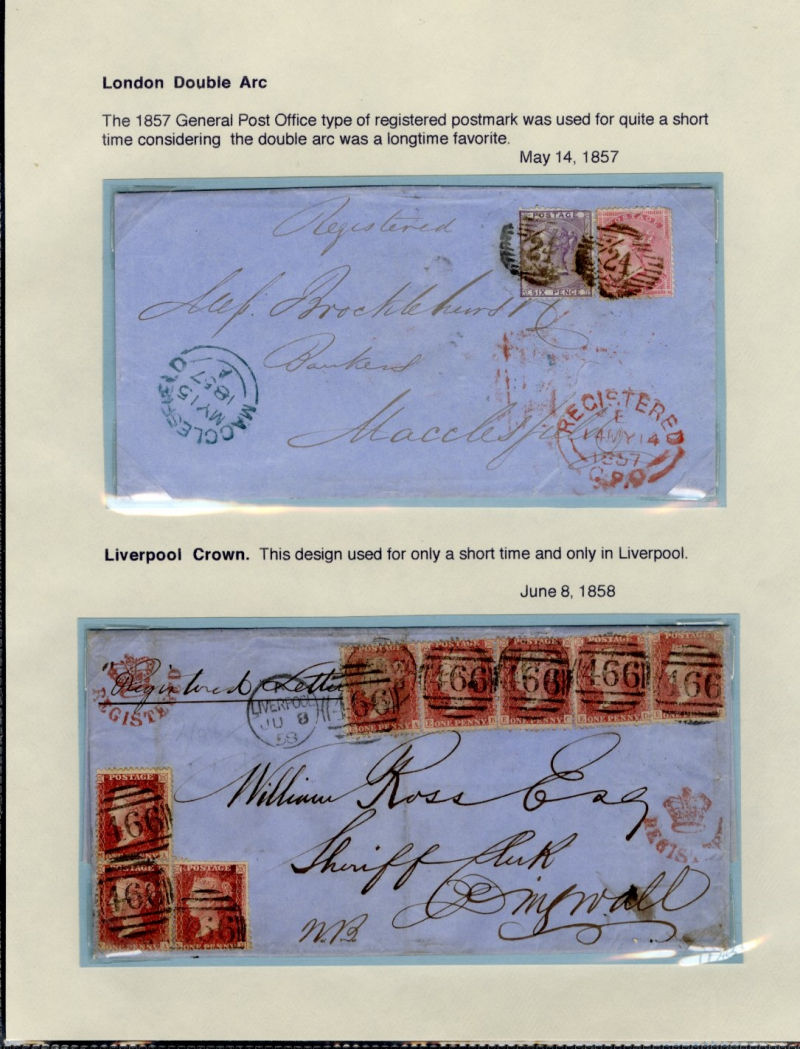 London Double Arc
The 1857 General Post Office type of registered postmark was used for quite a short
time considering the double arc was a longtime favorite.
May 14, 1857
Registered
POSTAGE
SIX PENCE
24
POSTAGE
24
Brocklehurst
Bankers
Macclesfield
MACCLESFIELD
MY 15
1857
A
REGISTERED
14 MY 14
1857
G.P.O
Liverpool Crown. This design used for only a short time and only in Liverpool.
June 8, 1858
REGISTERED
"Registered Letter
LIVERPOOL
JU 8
58
466
ONE PENNY
POSTAGE
466
ONE PENNY
POSTAGE
466
ONE PENNY
POSTAGE
466
ONE PENNY
POSTAGE
466
ONE PENNY
William Ross Esq
Sheriff Clerk
Dingwall
N.B.
REGISTE
POSTAGE
466
POSTAGE
466
ONE PENNY
ONE PENNY